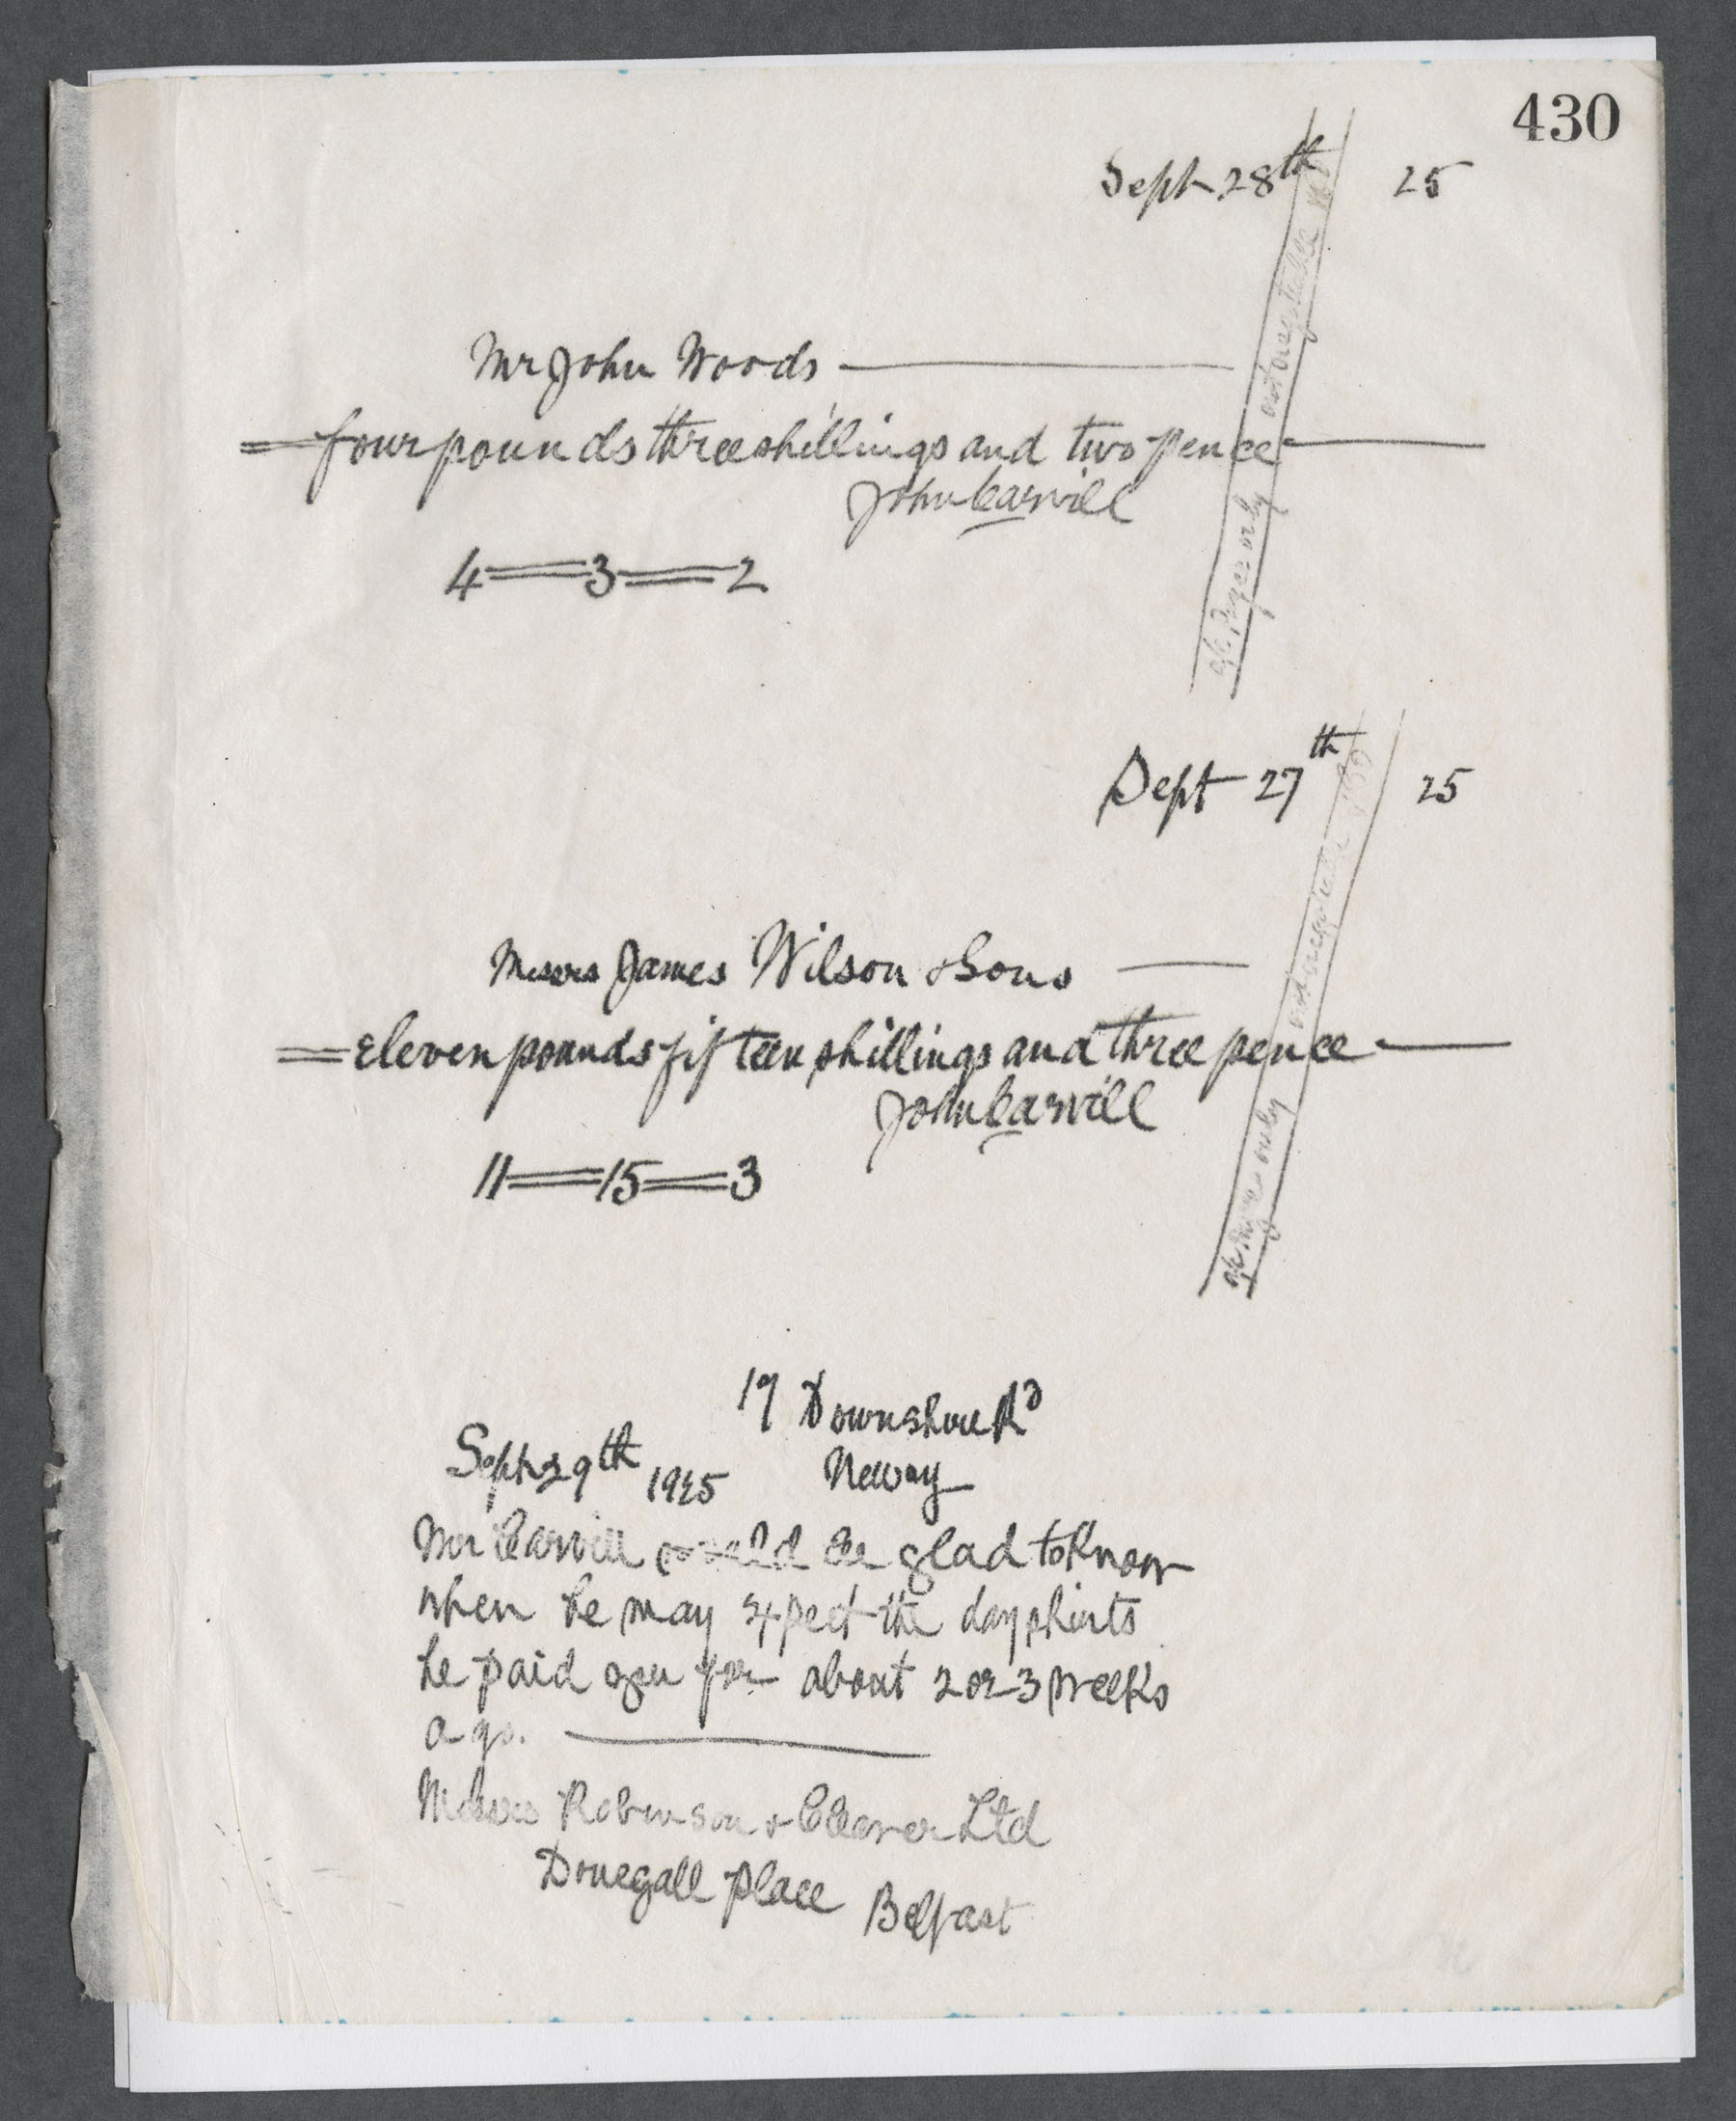 430
Sept 28th 25
Mr John Woods
four pounds three shillings and two pence
John Carvill
4 = 3 = 2
a/c payee only not negotiable
Sept 27th 25
Messrs James Wilson & Sons
eleven pounds fifteen shillings and three pence
John Carvill
11 = 15 = 3
a/c payee only not negotiable
17 Downshire Rd
Newry
Sept 29th 1925
Mr Carvill would be glad to know
when he may expect the day shirts
he paid you for about 2 or 3 weeks
ago.
Messrs Robinson & Cleaver Ltd
Donegall Place Belfast